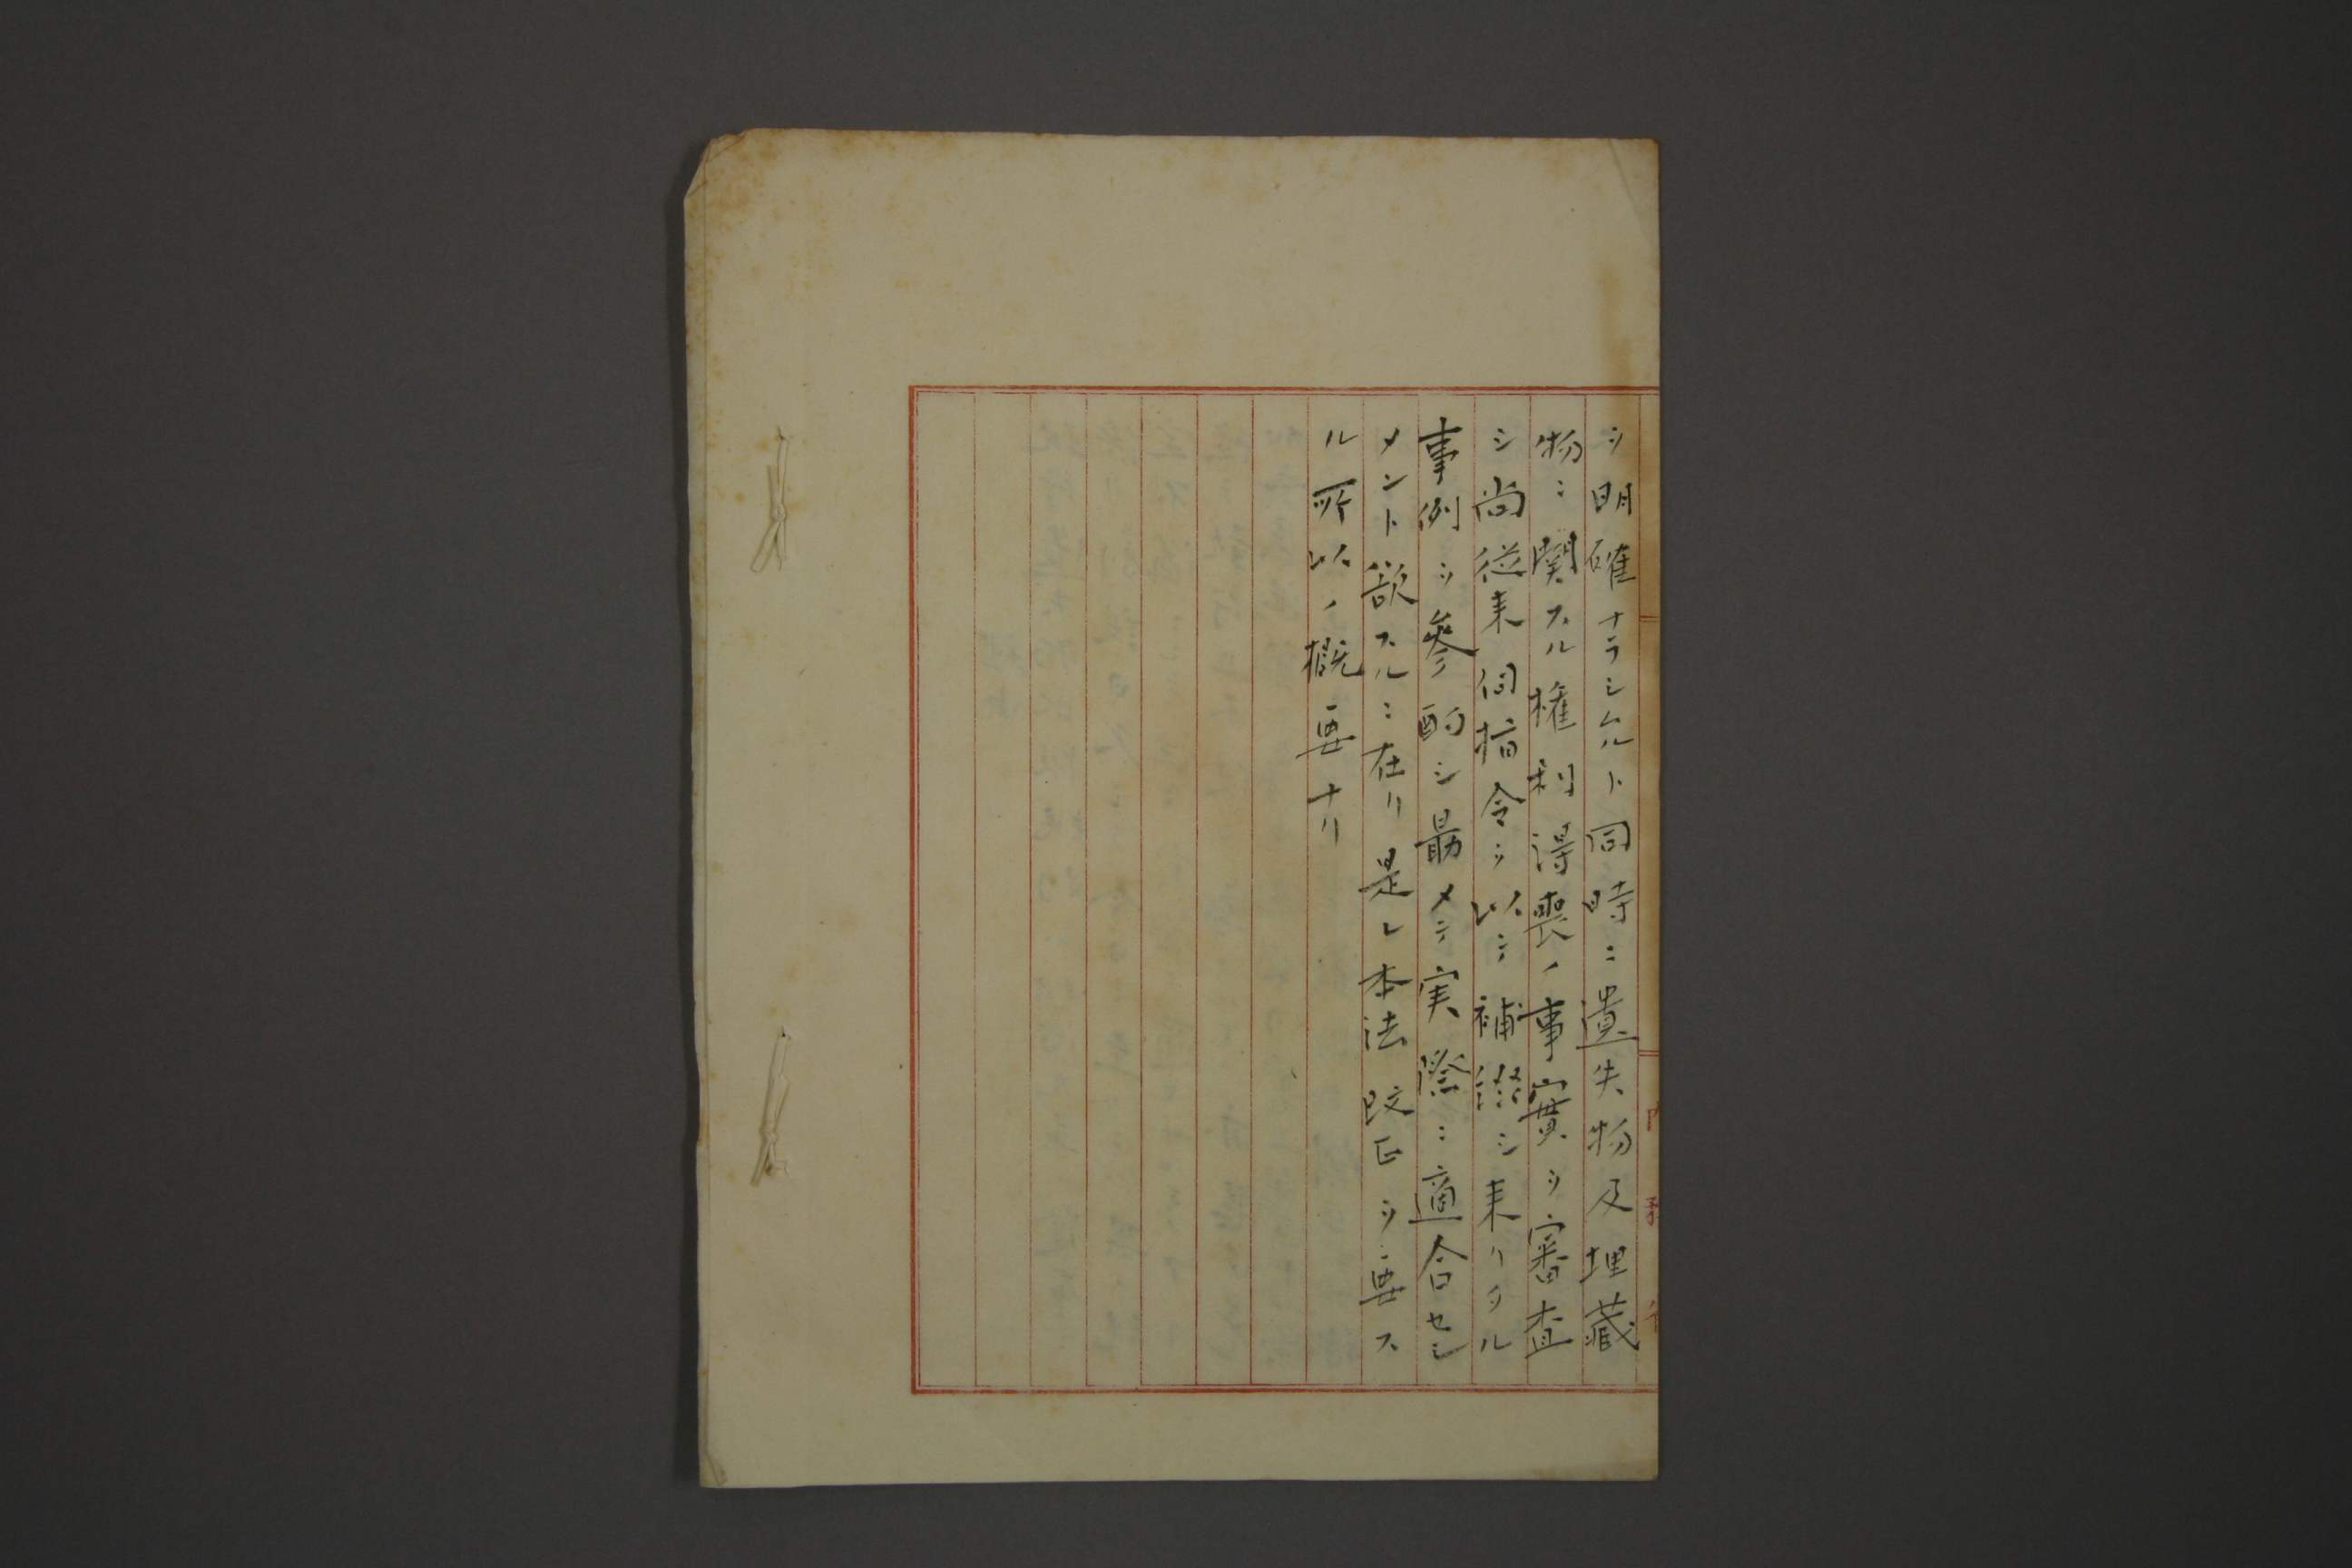 ヲ明確ナラシムルト同時ニ遺失物及埋藏
物ニ関スル権利得喪ノ事實ヲ審査
シ尚従来伺指令ヲ以テ補綴シ来リタル
事例ヲ參酌シ最メテ実際ニ適合セシ
メント欲スルニ在リ是レ本法改正ヲ要ス
ル所以ノ概要ナリ